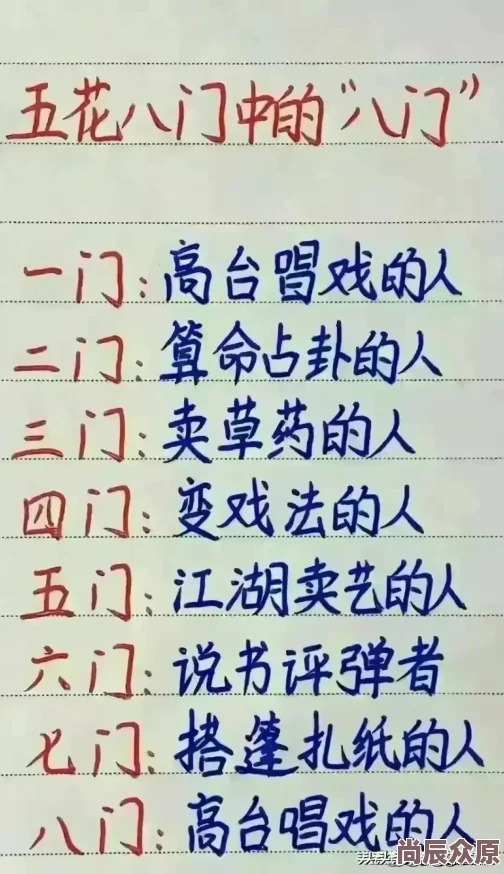 五花八门中的“八门”
一门：高台唱戏的人
二门：算命占卦的人
三门：卖草药的人
四门：变戏法的人
五门：江湖卖艺的人
六门：说书评弹者
七门：搭篷扎纸的人
八门：高台唱戏的人
尚辰众原